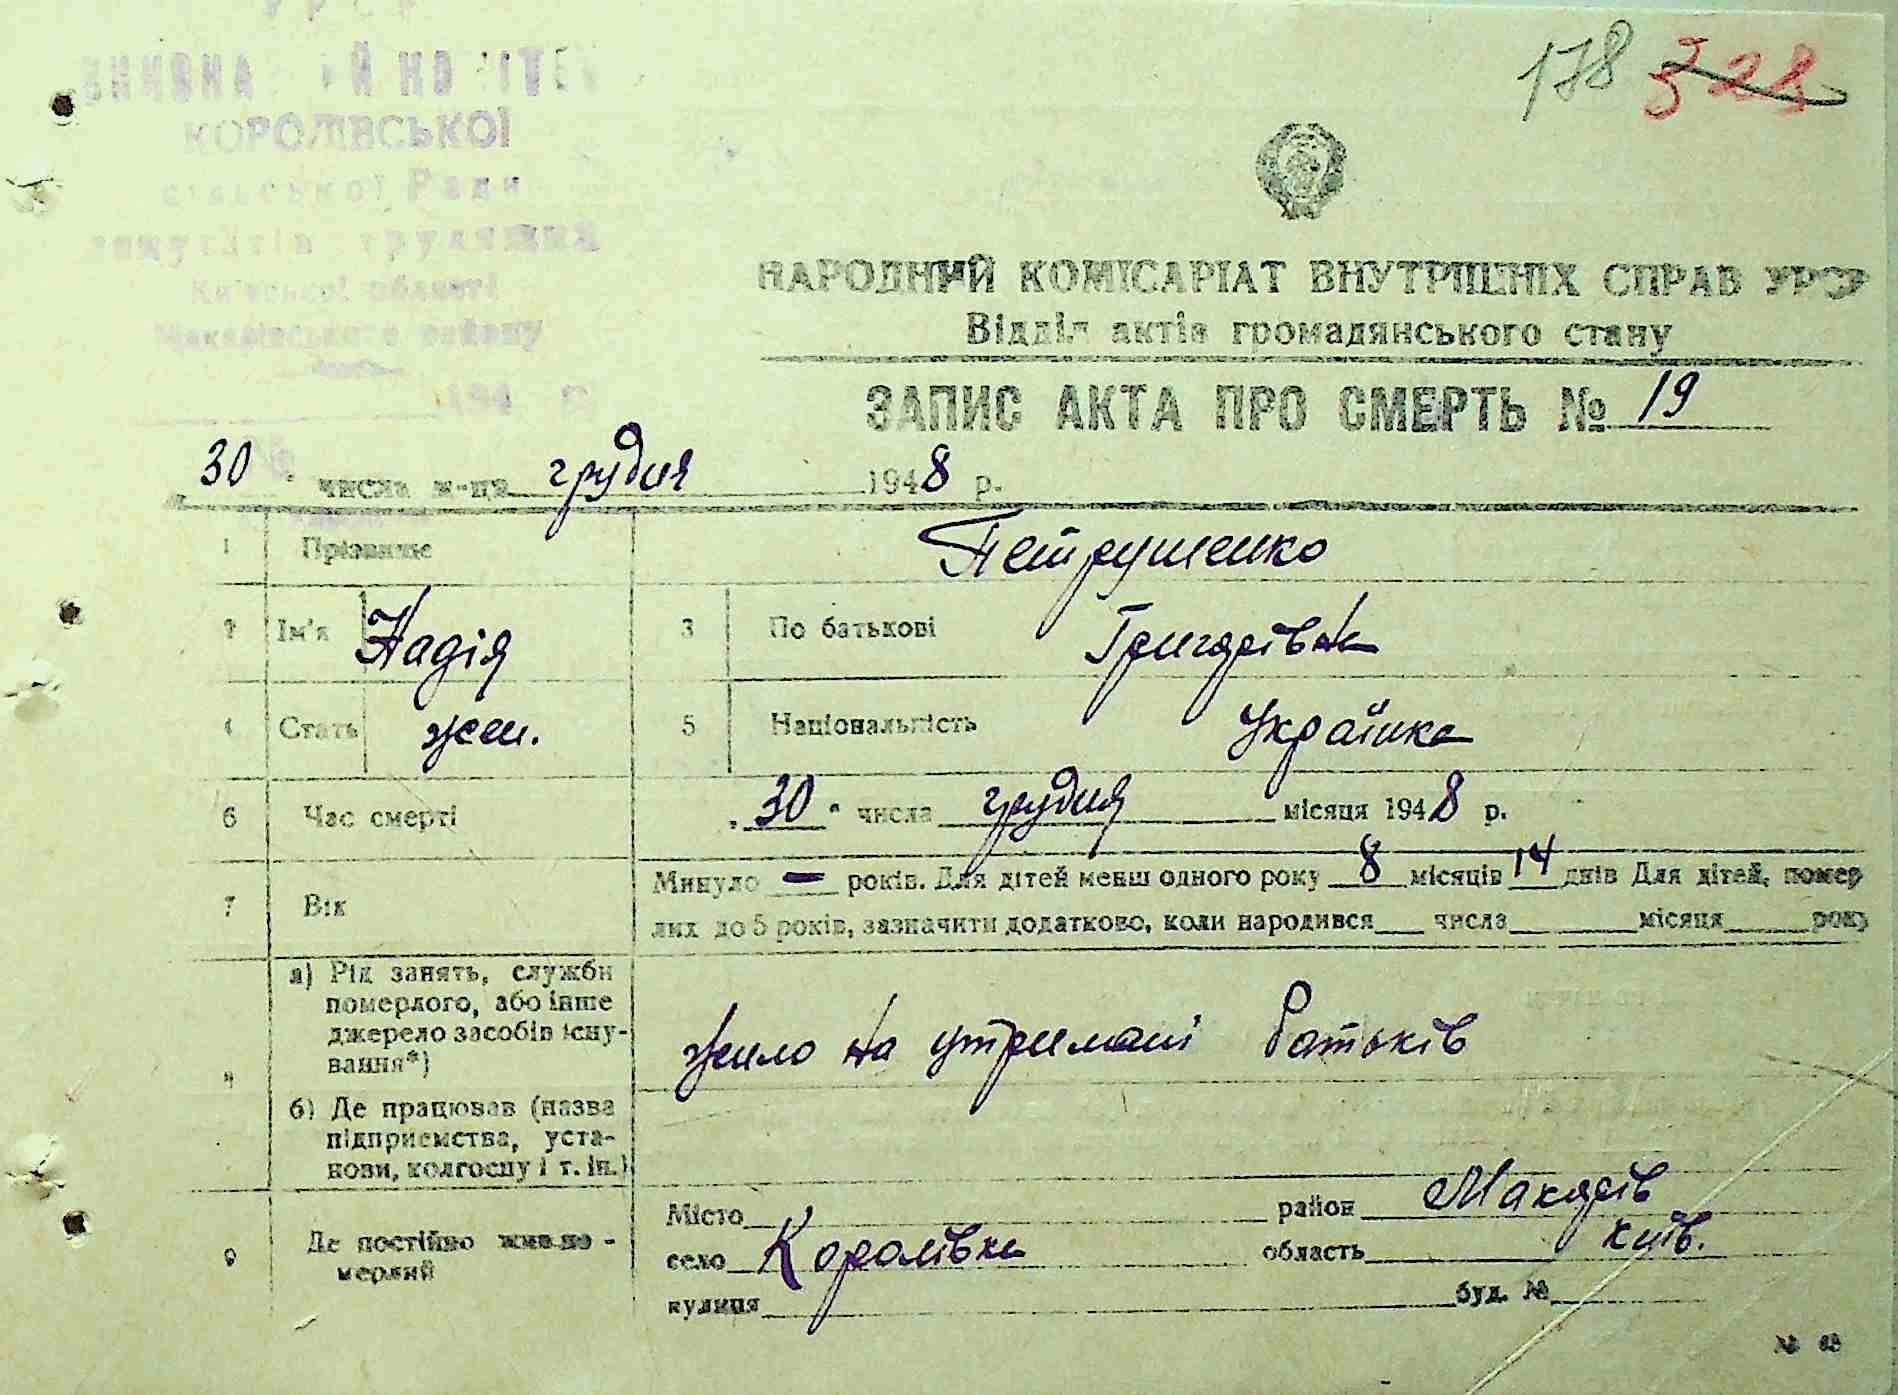 УРСР
КОРОЛІВСЬКОЇ
сільської Ради
депутатів трудящих
Київської області
Макарівського району
194 р.
178 328
НАРОДНИЙ КОМІСАРІАТ ВНУТРІШНІХ СПРАВ УРСР
Відділ актів громадянського стану
ЗАПИС АКТА ПРО СМЕРТЬ № 19
30 числа м-ця грудня 1948 р.
1 Прізвище Петрушенко
2 Ім'я Надія 3 По батькові Григорівна
4 Стать жен. 5 Національність Українка
6 Час смерті „30" числа грудня місяця 1948 р.
7 Вік Минуло — років. Для дітей менш одного року 8 місяців 14 днів Для дітей, помер
лих до 5 років, зазначити додатково, коли народився числа місяця року
8 а) Рід занять, служби
померлого, або інше
джерело засобів існу-
вання*) жило на утримані батьків
б) Де працював (назва
підприємства, уста-
нови, колгоспу і т. ін.)
9 Де постійно жив по-
мерлий
Місто район Макарів
село Королівка область Київ.
вулиця буд. №